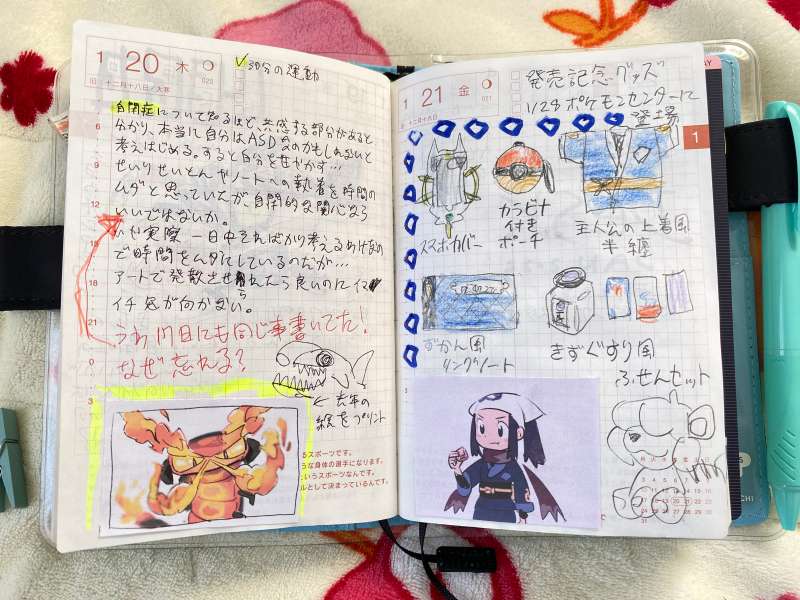 1
20
木
十二月十八日/大寒
020
✓30分の運動
自閉症について知るほど 共感する部分があると
分かり、本当に自分はASDなのかもしれないと
考えはじめる。すると自分を甘やかす…
せいりせいとんやノートへの執着を時間の
ムダと思っていたが、自閉的な関心なら
いいではないか。
いや実際 一日中そればかり考えるわけなの
で時間をムダにしているのだが…
アートで発散させられたら良いのに イマ
イチ 気が向かない。
うわ 17日にも同じ事書いてた!
なぜ忘れる?
← 去年の
絵をプリント
るスポーツです。
うな身体の選手になります。
というスポーツなんです。
ルとして決まっているんです。
6
9
12
15
18
21
0
3
1
21
金
021
発売記念グッズ
1/28 ポケモンセンターに
登場
1
スマホカバー
カラビナ
付き
ポーチ
主人公の上着風
半纏
ずかん風
リングノート
きずぐすり風
ふせんセット